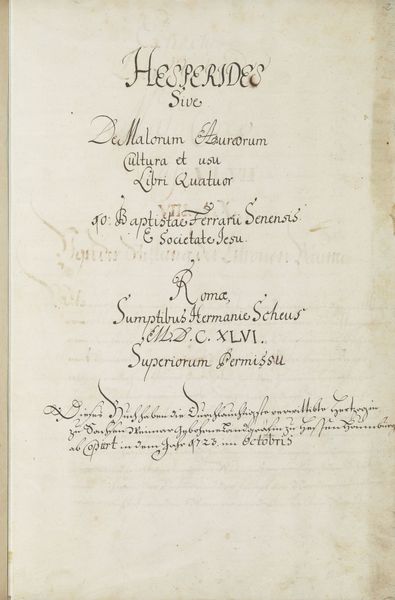 HESPERIDES
Sive
De Malorum Aureorum
Cultura et usu
Libri Quatuor
Jo: Baptistae Ferrarii Senensis
E Societate Jesu.
Romæ,
Sumptibus Hermanni Scheus
M.D.C.XLVI.
Superiorum Permissu
Dieses Buch haben die Durchlauchtigste verwittibte Hertzogin
zu Sachsen Weimar gebohrne Landgräfin zu Hessen Homburg
ab Copiirt in dem Jahr 1723. im Octobris